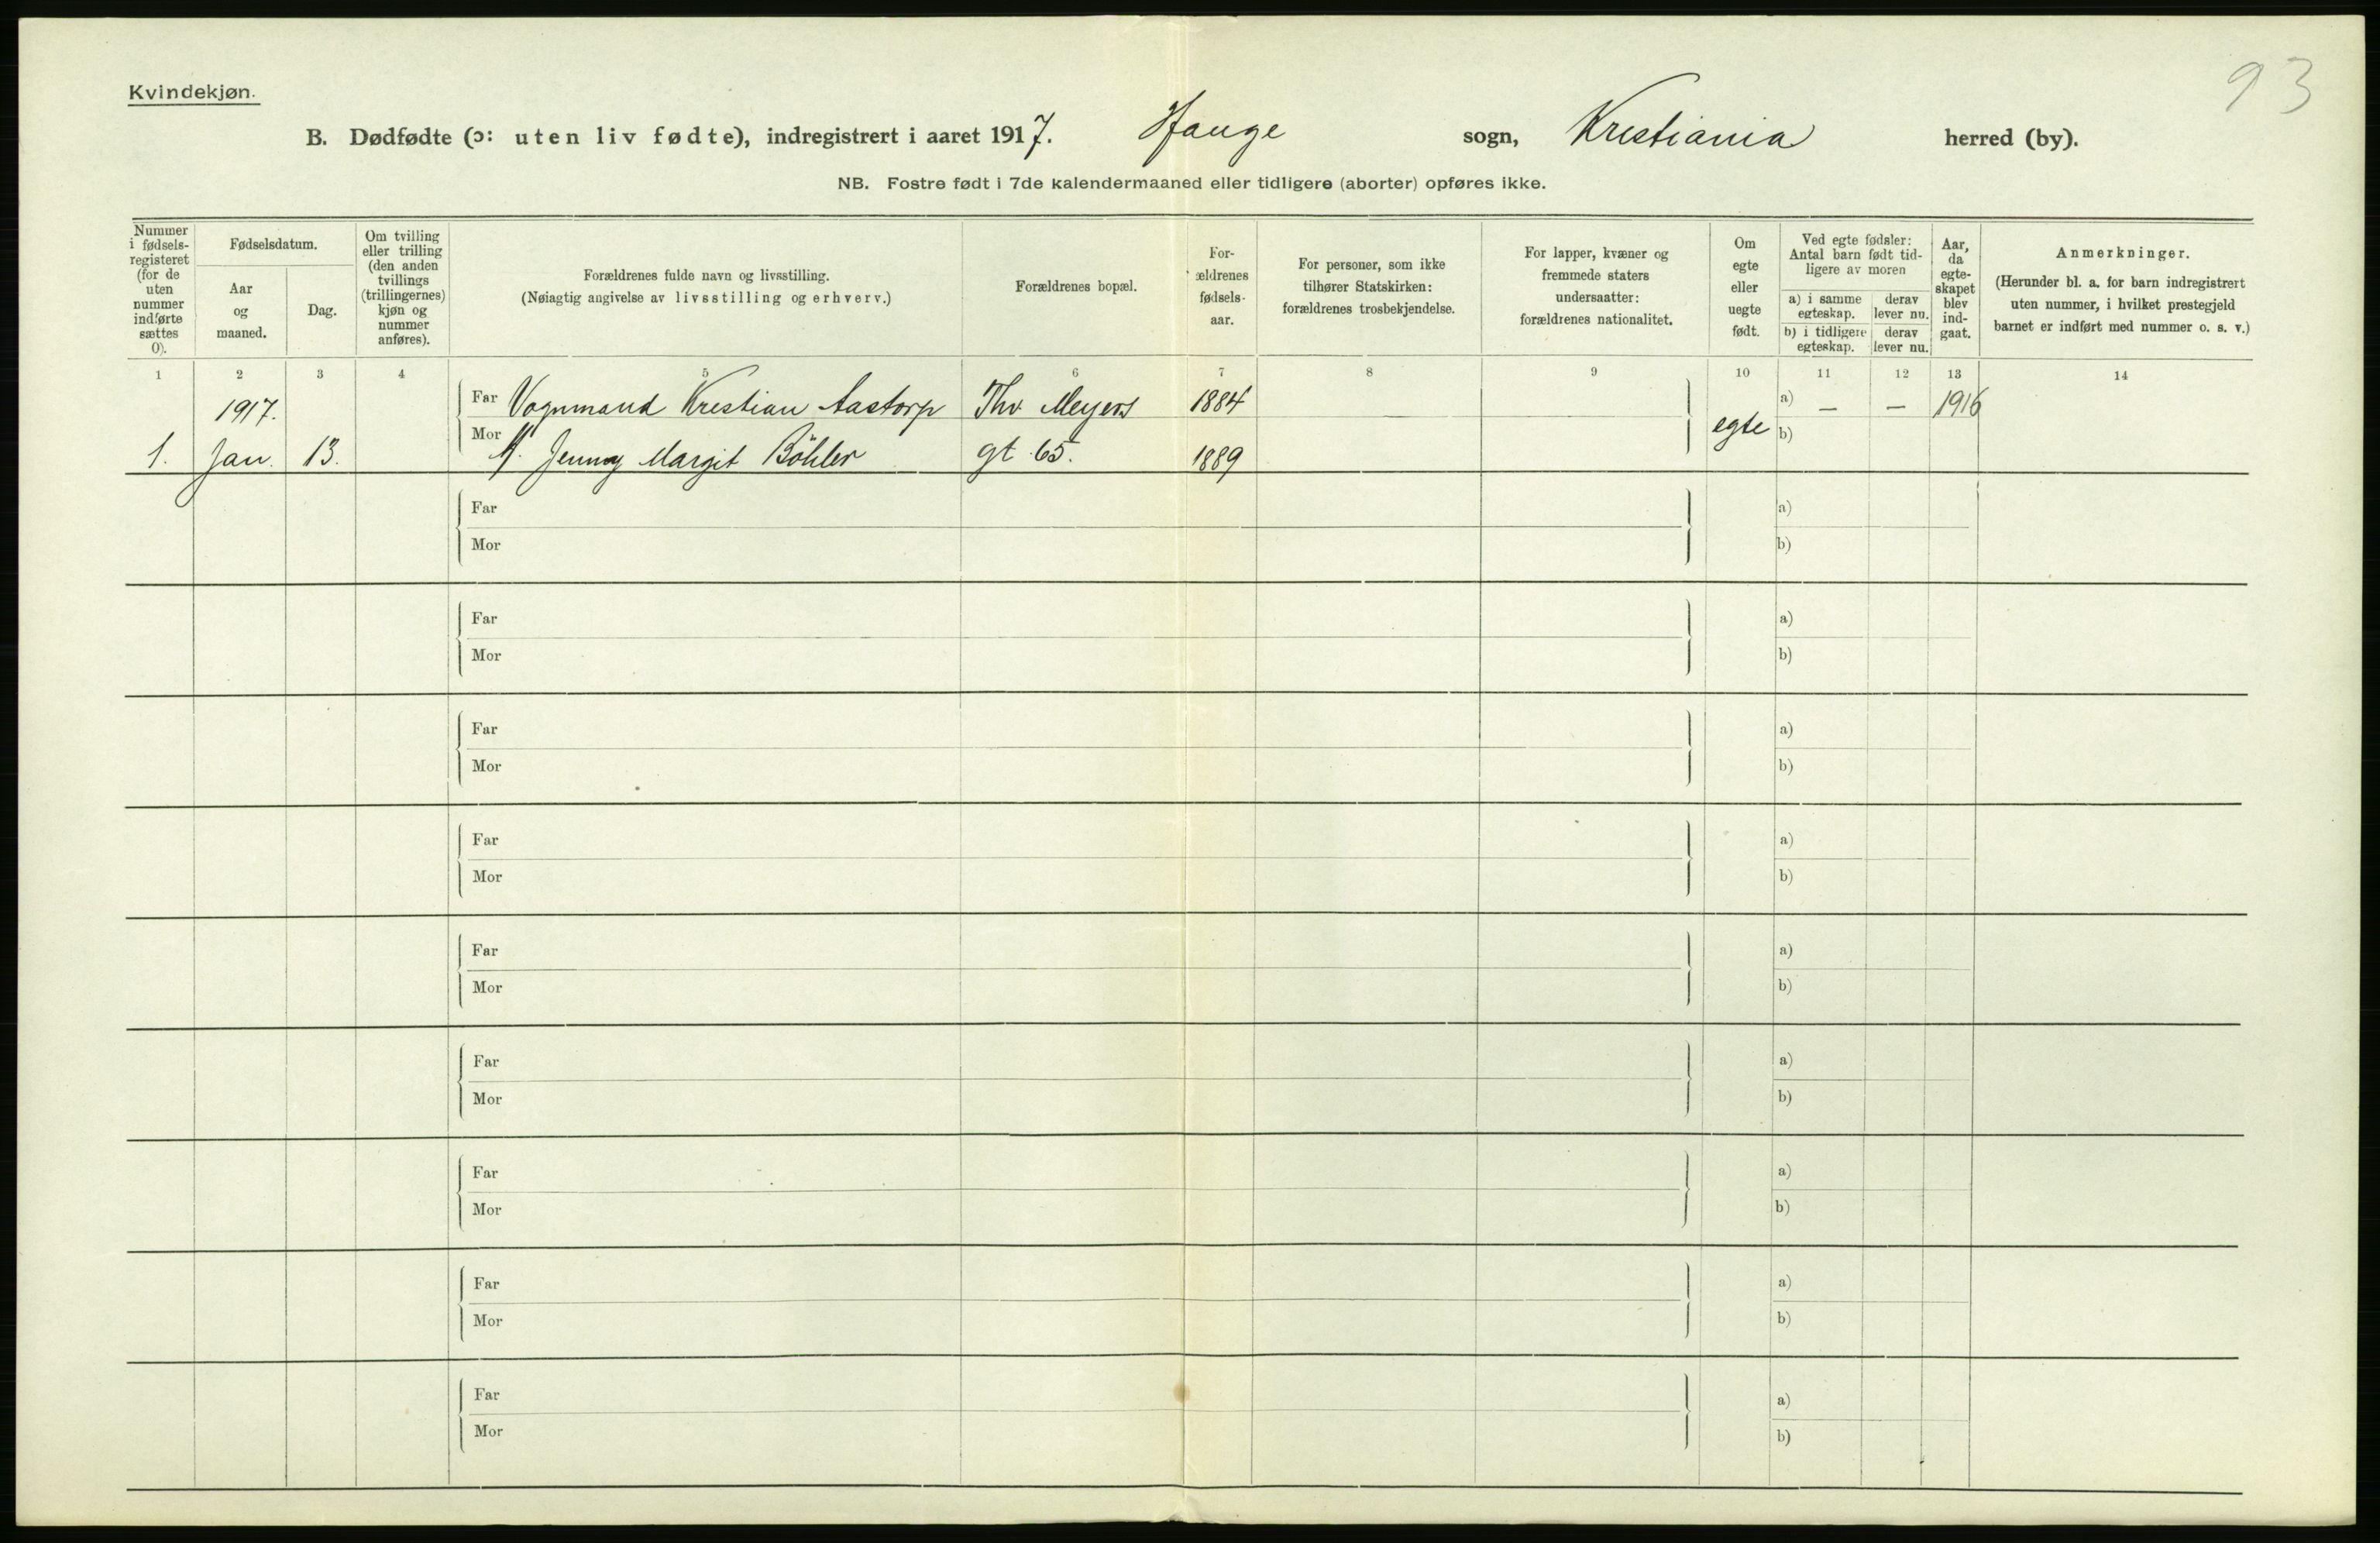 93
Kvindekjøn.
B. Dødfødte (ɔ: uten liv fødte), indregistrert i aaret 1917. Hauge sogn, Kristiania herred (by).
NB. Fostre født i 7de kalendermaaned eller tidligere (aborter) opføres ikke.
Nummer
i fødsels-
registeret
(for de
uten
nummer
indførte
sættes
0).
Fødselsdatum.
Aar
og
maaned.
Dag.
Om tvilling
eller trilling
(den anden
tvillings
(trillingernes)
kjøn og
nummer
anføres).
Forældrenes fulde navn og livsstilling.
(Nøiagtig angivelse av livsstilling og erhverv.)
Forældrenes bopæl.
For-
ældrenes
fødsels-
aar.
For personer, som ikke
tilhører Statskirken:
forældrenes trosbekjendelse.
For lapper, kvæner og
fremmede staters
undersaatter:
forældrenes nationalitet.
Om
egte
eller
uegte
født.
Ved egte fødsler:
Antal barn født tid-
ligere av moren
a) i samme
egteskap.
derav
lever nu.
b) i tidligere
egteskap.
derav
lever nu.
Aar,
da
egte-
skapet
blev
ind-
gaat.
Anmerkninger.
(Herunder bl. a. for barn indregistrert
uten nummer, i hvilket prestegjeld
barnet er indført med nummer o. s. v.)
1 2 3 4 5 6 7 8 9 10 11 12 13 14
1917. Far Vognmand Krestian Aastorp Thv. Meyers 1884 — a) — — 1916
1. Jan. 13. Mor H. Jenny Margit Böhler gt. 65. 1889 egte b)
Far a)
Mor b)
Far a)
Mor b)
Far a)
Mor b)
Far a)
Mor b)
Far a)
Mor b)
Far a)
Mor b)
Far a)
Mor b)
Far a)
Mor b)
Far a)
Mor b)